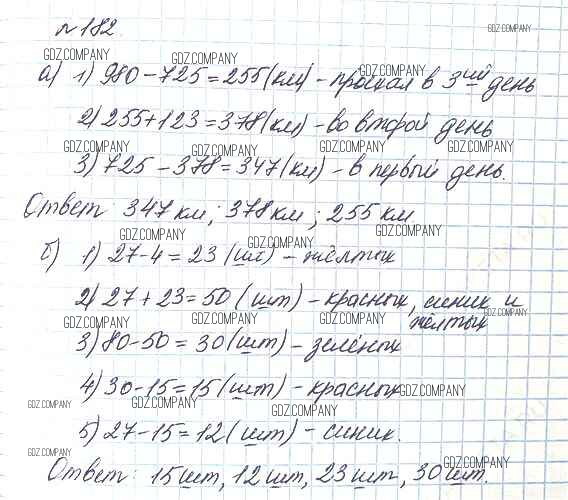 №182.
GDZ.COMPANY
GDZ.COMPANY GDZ.COMPANY
а) 1) 980-725=255(км) - проехал в 3ий день
GDZ.COMPANY
2) 255+123=378(км) - во второй день
GDZ.COMPANY GDZ.COMPANY GDZ.COMPANY GDZ.COMPANY
3) 725-378=347(км) - в первый день.
Ответ: 347 км; 378 км; 255 км
GDZ.COMPANY GDZ.COMPANY GDZ.COMPANY
б) 1) 27-4=23 (шт) - жёлтых
2) 27+23=50 (шт) - красных, синих и
жёлтых
GDZ.COMPANY GDZ.COMPANY GDZ.COMPANY GDZ.COMPANY
3) 80-50=30 (шт) - зелёных
4) 30-15=15 (шт) - красных
GDZ.COMPANY
GDZ.COMPANY GDZ.COMPANY GDZ.COMPANY
5) 27-15=12 (шт) - синих.
GDZ.COMPANY GDZ.COMPANY
Ответ: 15 шт, 12 шт, 23 шт, 30 шт.